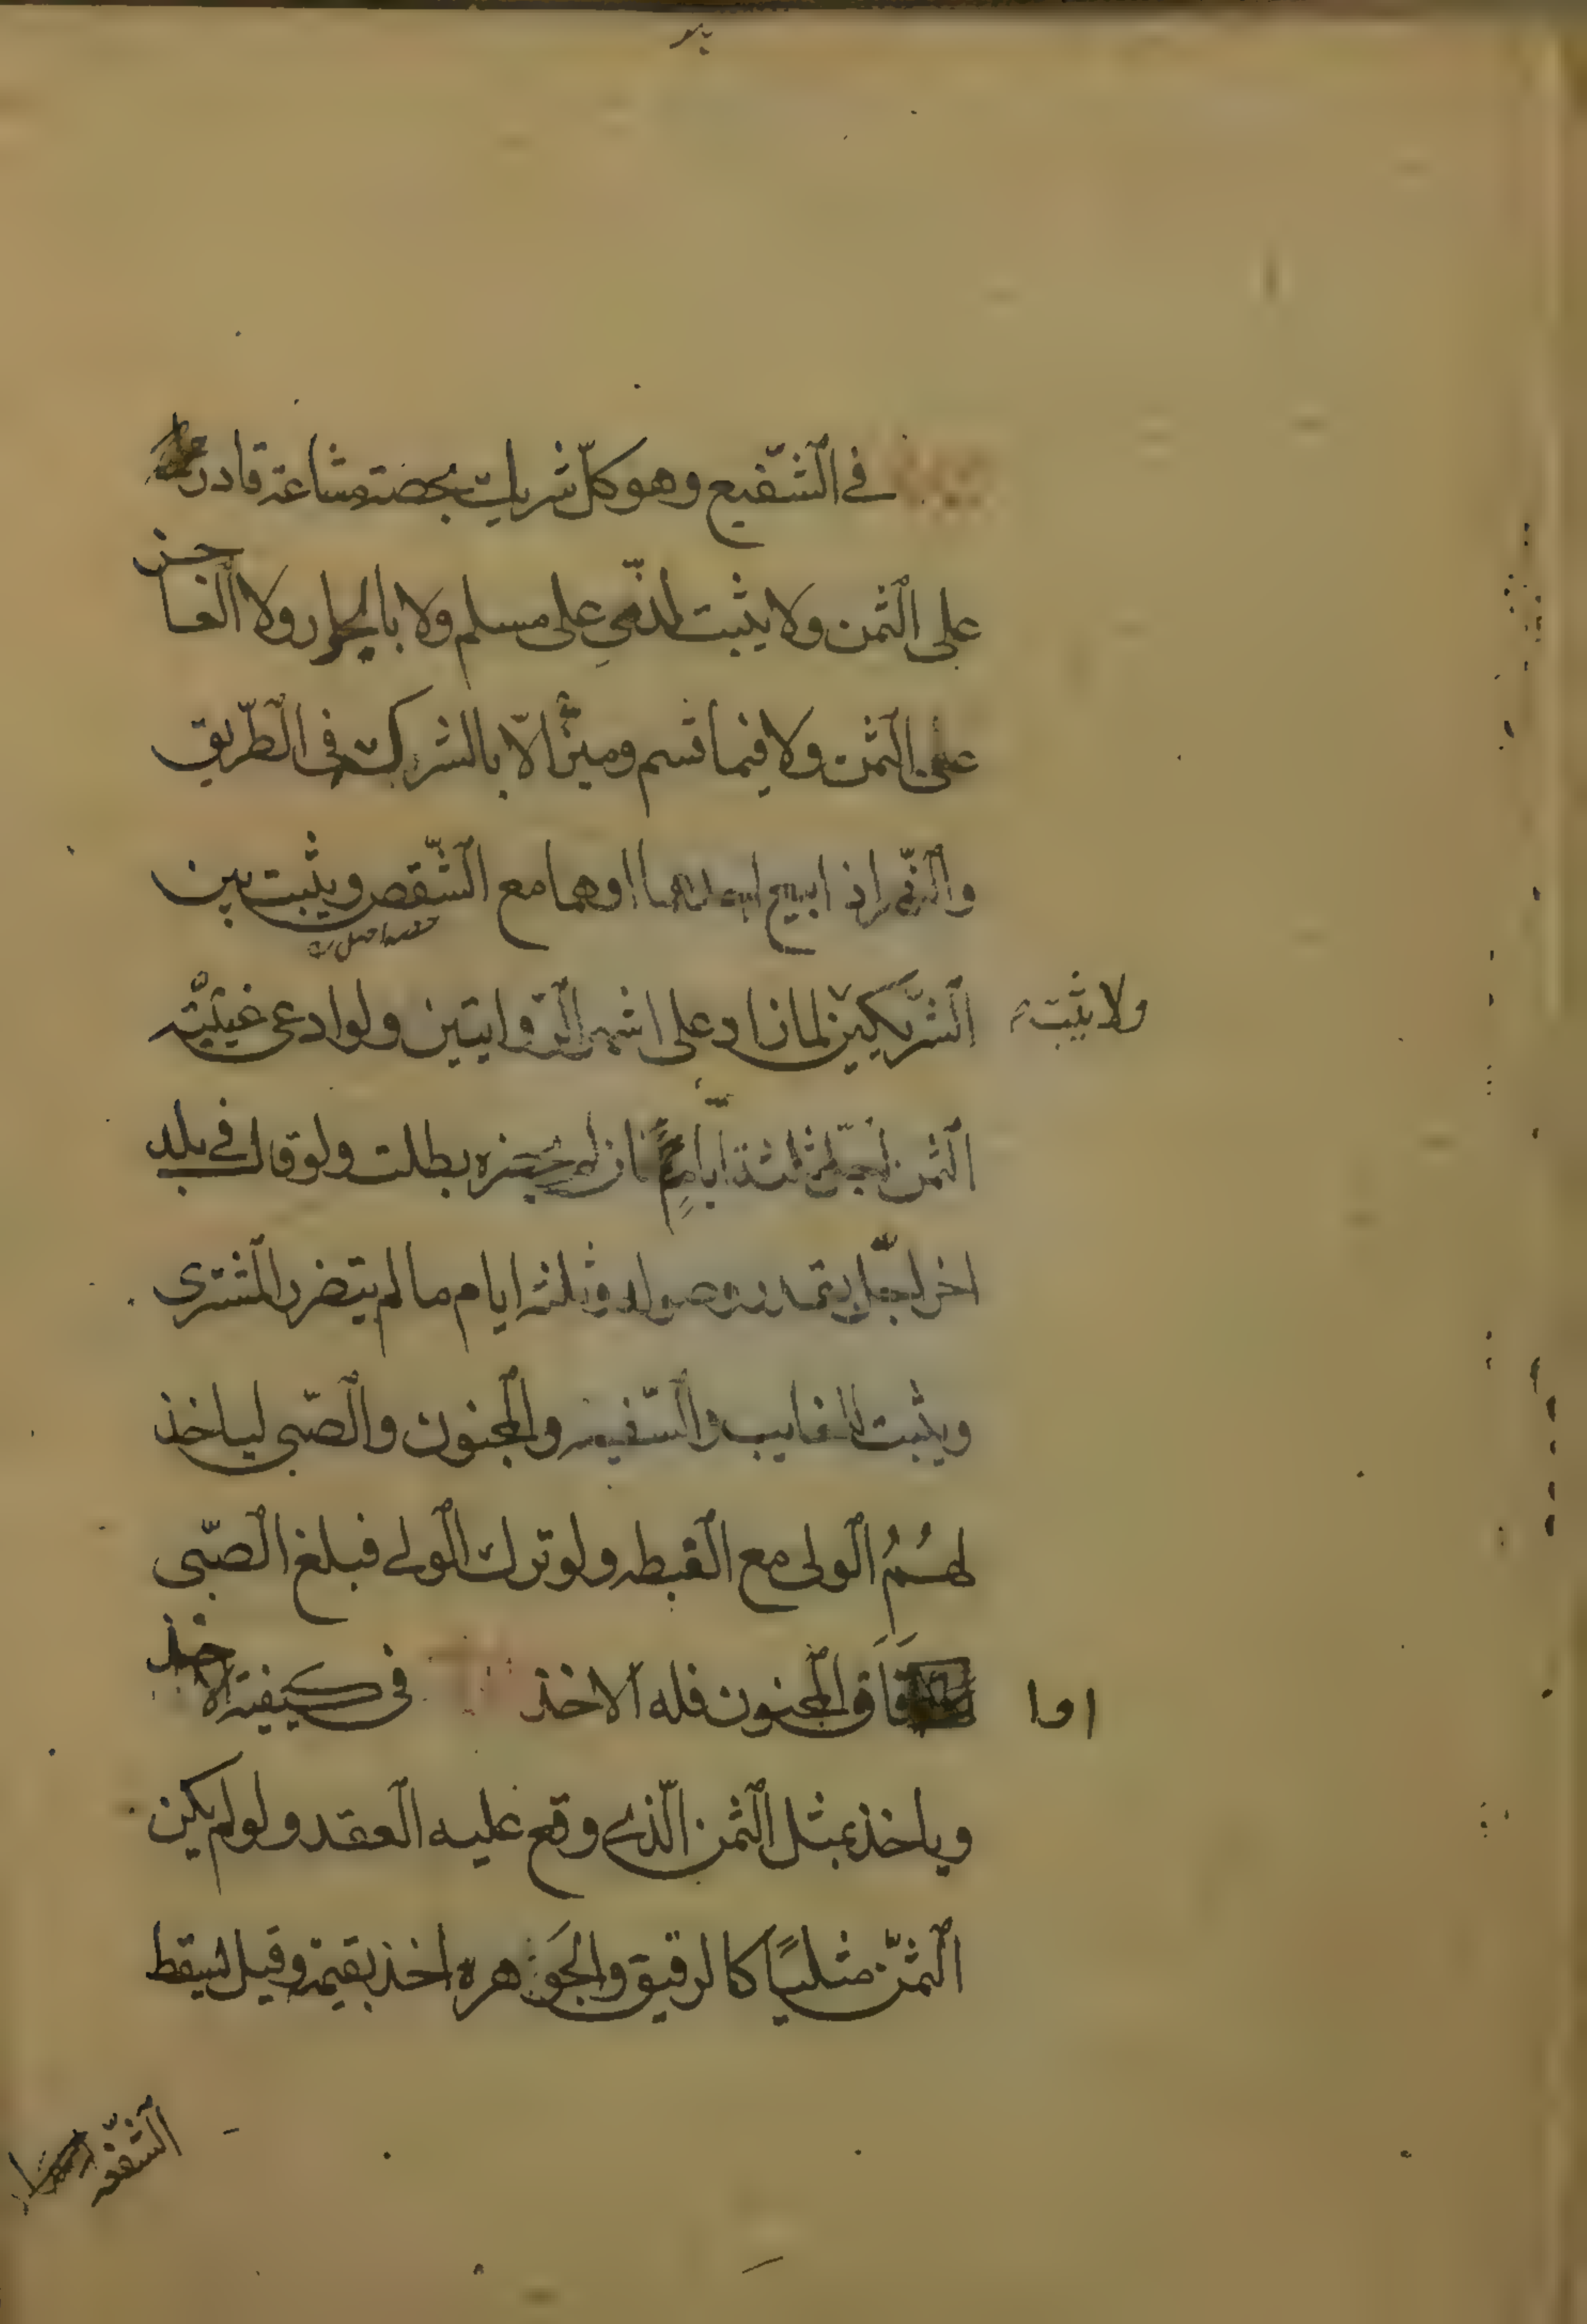 في الشّفيع وهو كلّ شريك بحصة مشاعة قادر
على الثمن ولا يثبت لذمّي على مسلم ولا بالجوار ولا العاجز
عن الثمن ولا فيما قسم وميّز الّا بالشركة في الطّريق
والنّهر اذا بيع احدهما او هما مع الشّقص ويثبت بين
الشّريكين لما زاد على اشهر الرّوايتين ولو ادعى غيبة
ولا يثبت
الثمن اجّل ثلثة ايّام فان لم يحضره بطلت ولو قال في بلد
اخر اجّل بقدر وصوله وثلثة ايام ما لم يتضرر المشترى
ويثبت للغايب والسّفيه والمجنون والصّبي لياخذ
لهم الولى مع الغبطه ولو ترك الولي فبلغ الصّبى
فاق المجنون فله الاخذ في كيفية الاخذ
او ا
وياخذ بمثل الثمن الّذي وقع عليه العقد ولو لم يكن
الثمن مثليًا كالرقيق والجَوهره اخذ بقيمته وقيل تسقط
الشّفعه